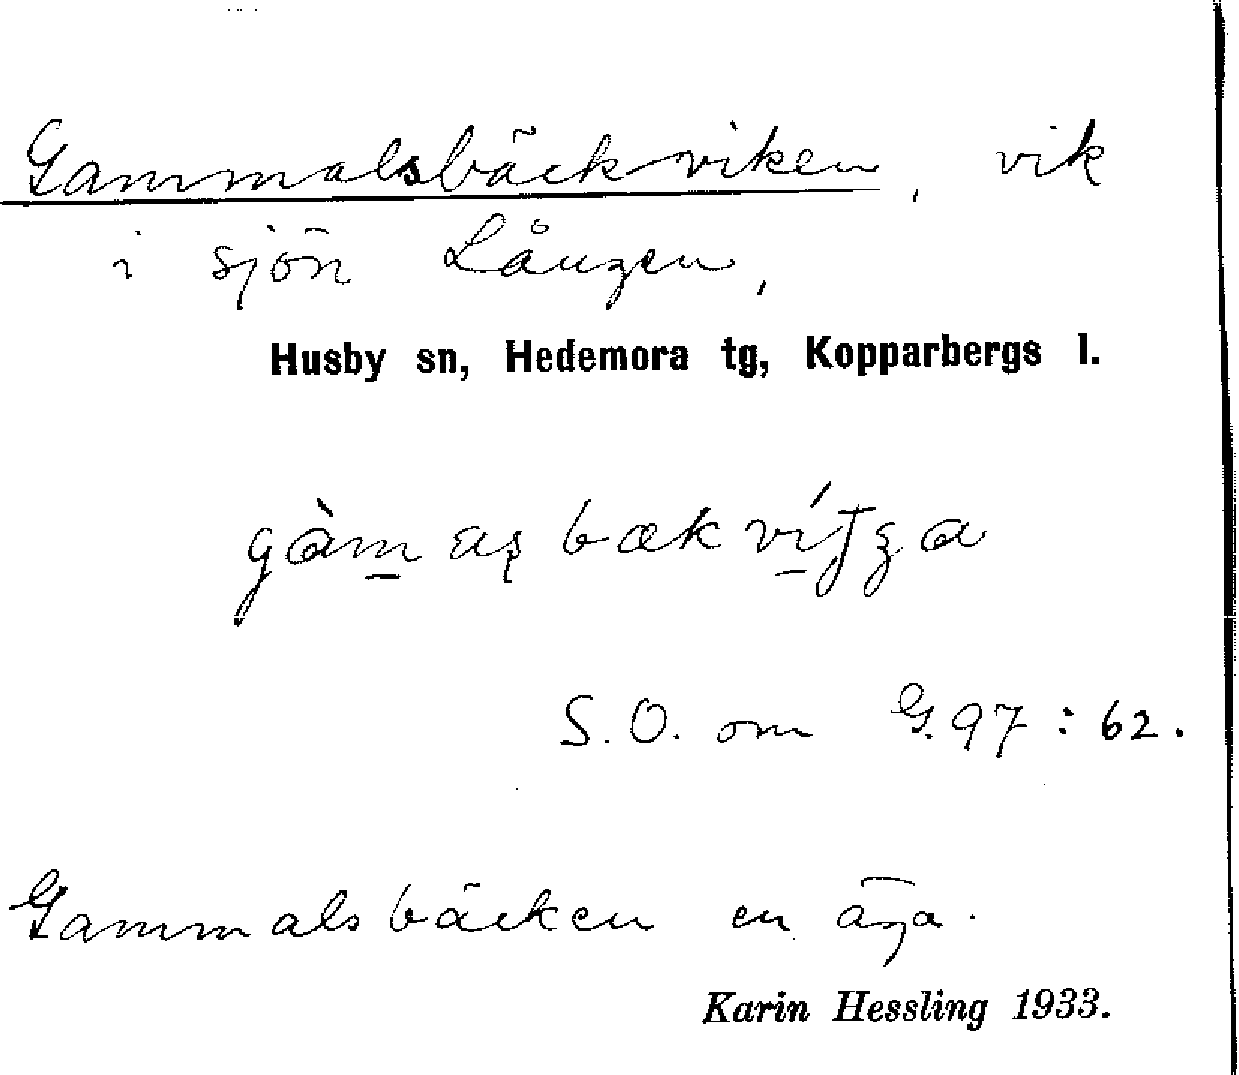 Gammalsbäckviken, vik
i sjön Lången,
Husby sn, Hedemora tg, Kopparbergs l.
S. O. om G. 97 : 62.
Gammalsbäcken en äga.
Karin Hessling 1933.